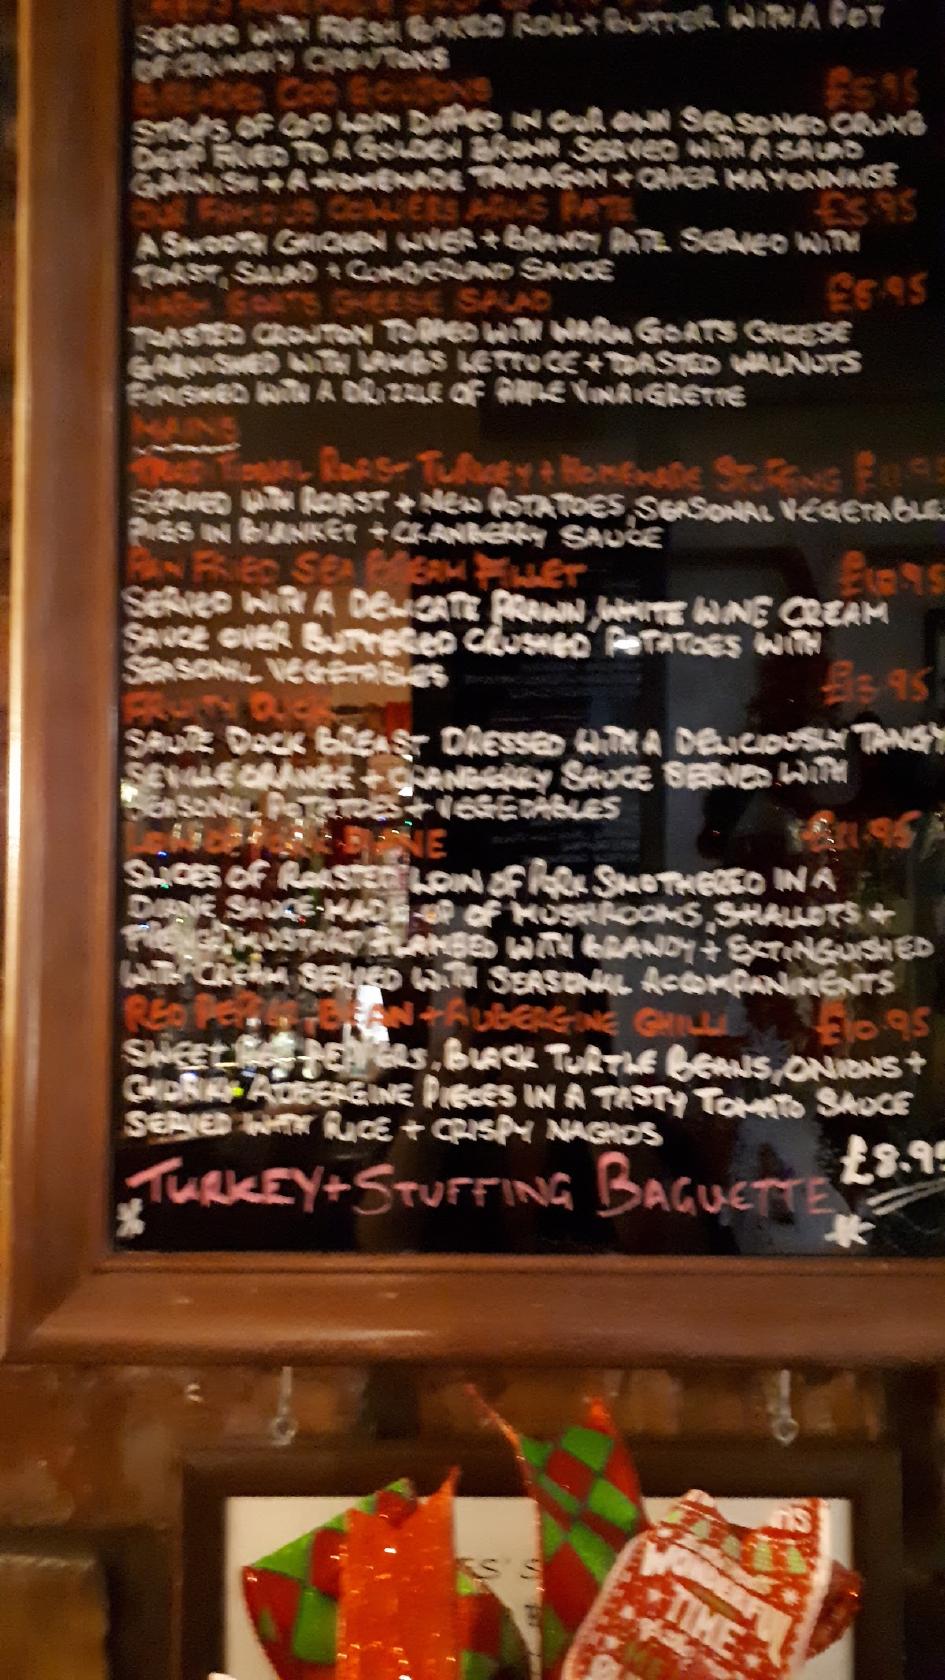 SERVED WITH FRESH BAKED ROLL + BUTTER WITH A POT
OF CRUNCHY CROUTONS
BREADED COD GOUJONS £5.95
STRIPS OF COD LOIN DIPPED IN OUR OWN SEASONED CRUMB
DEEP FRIED TO A GOLDEN BROWN SERVED WITH A SALAD
GARNISH + A HOMEMADE TARRAGON + CAPER MAYONNAISE
OUR FAMOUS COLLIERS ARMS PATE £5.95
A SMOOTH CHICKEN LIVER + BRANDY PATE SERVED WITH
TOAST, SALAD + CUMBERLAND SAUCE
WARM GOATS CHEESE SALAD £6.95
TOASTED CROUTON TOPPED WITH WARM GOATS CHEESE
GARNISHED WITH LAMBS LETTUCE + TOASTED WALNUTS
FINISHED WITH A DRIZZLE OF APPLE VINAIGRETTE
MAINS
TRADITIONAL ROAST TURKEY + HOMEMADE STUFFING
SERVED WITH ROAST + NEW POTATOES, SEASONAL VEGETABLES
PIGS IN BLANKET + CRANBERRY SAUCE
PAN FRIED SEA BREAM FILLET £12.95
SERVED WITH A DELICATE PRAWN, WHITE WINE CREAM
SAUCE OVER BUTTERED CRUSHED POTATOES WITH
SEASONAL VEGETABLES
FRUITY DUCK £13.95
SAUTE DUCK BREAST DRESSED WITH A DELICIOUSLY TANGY
SEVILLE ORANGE + CRANBERRY SAUCE SERVED WITH
SEASONAL POTATOES + VEGETABLES
LOIN OF PORK DIANE £11.95
SLICES OF ROASTED LOIN OF PORK SMOTHERED IN A
DIANE SAUCE MADE UP OF MUSHROOMS, SHALLOTS +
FRENCH MUSTARD FLAMBED WITH BRANDY + EXTINGUISHED
WITH CREAM SERVED WITH SEASONAL ACOMPANIMENTS
RED PEPPER, BEAN + AUBERGINE CHILLI £10.95
SWEET RED PEPPERS, BLACK TURTLE BEANS, ONIONS +
CHUNKY AUBERGINE PIECES IN A TASTY TOMATO SAUCE
SERVED WITH RICE + CRISPY NACHOS
* TURKEY + STUFFING BAGUETTE * £8.95
WONDERFUL
TIME